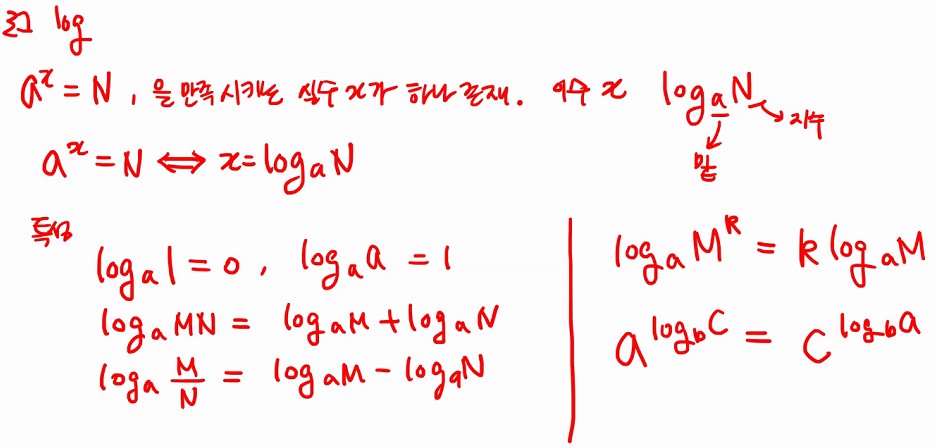 로그 log
a^x = N, 을 만족시키는 실수 x가 하나 존재. 이수 x log_a N
밑 지수
a^x = N ⟺ x = log_a N
특성
log_a 1 = 0, log_a a = 1
log_a MN = log_a M + log_a N
log_a M/N = log_a M - log_a N
log_a M^k = k log_a M
a^{log_b C} = C^{log_b a}